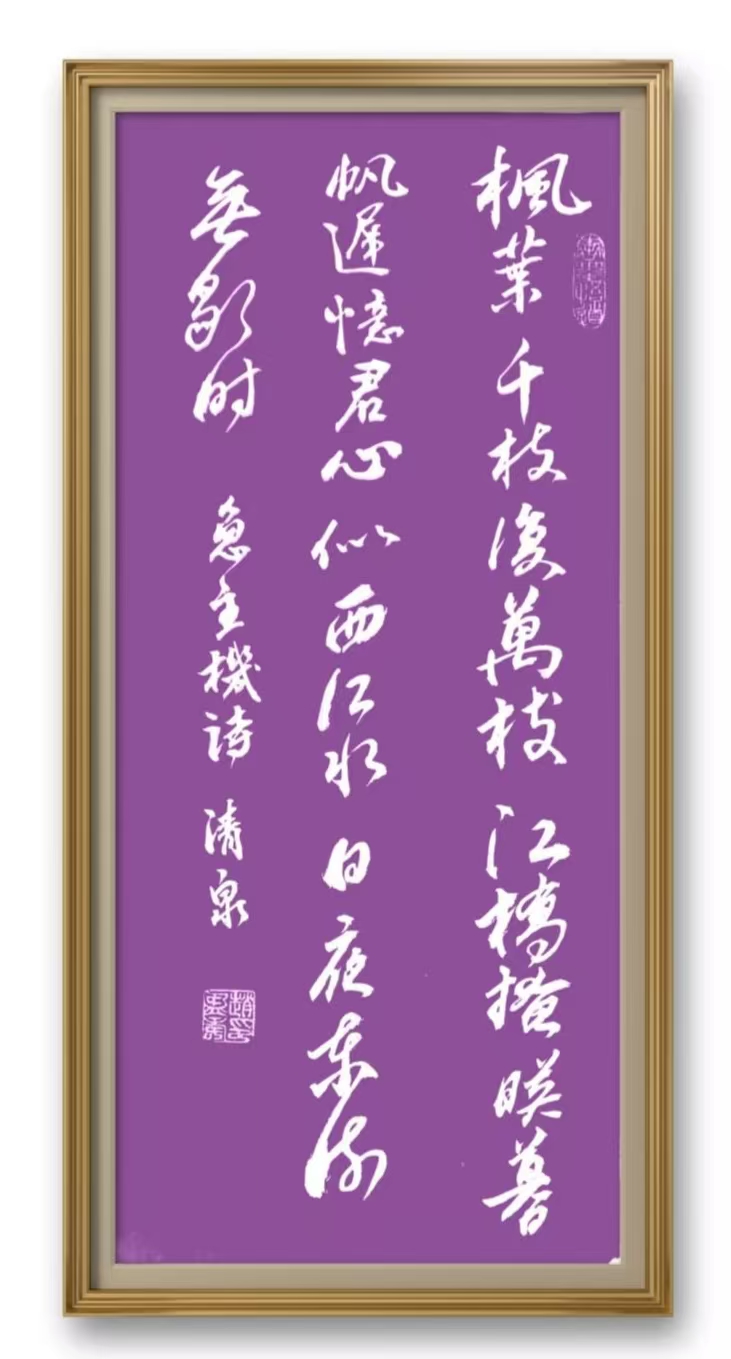 楓葉千枝復萬枝江橋掩映暮
帆遲憶君心似西江水日夜東流
無歇时 魚玄機诗 清泉